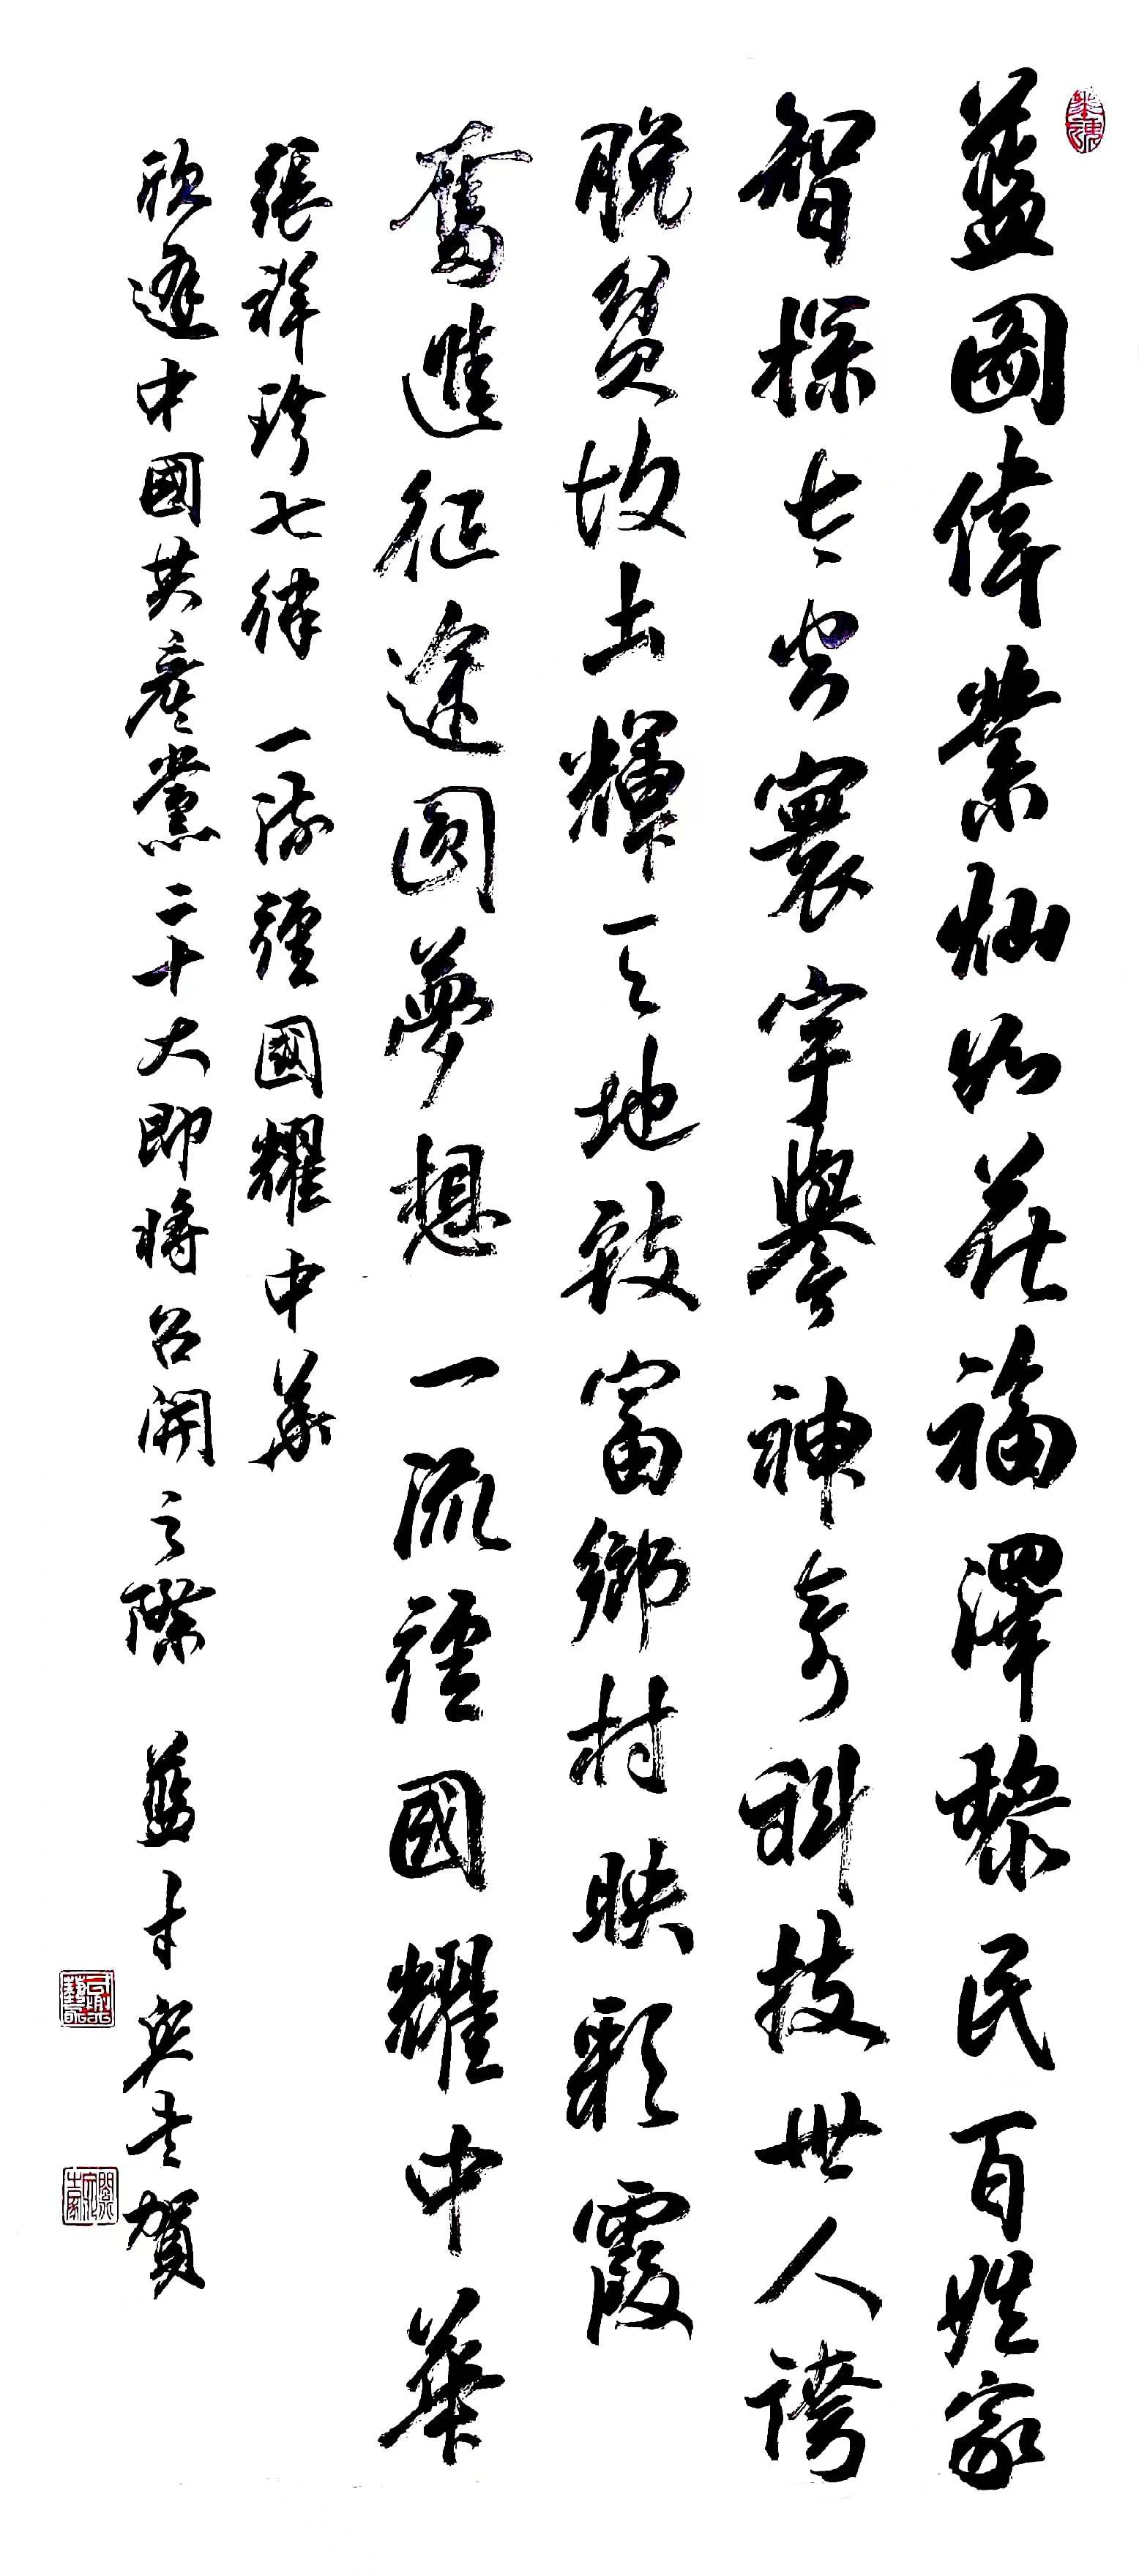 藍圖偉業灿如花福澤黎民百姓家
智探太空寰宇譽神奇科技世人誇
脫貧故土輝天地致富鄉村映彩霞
奮進征途圓夢想一流強國耀中華
張祥珍七律一流強國耀中華
欣逢中國共產黨二十大即將召開之際 賀